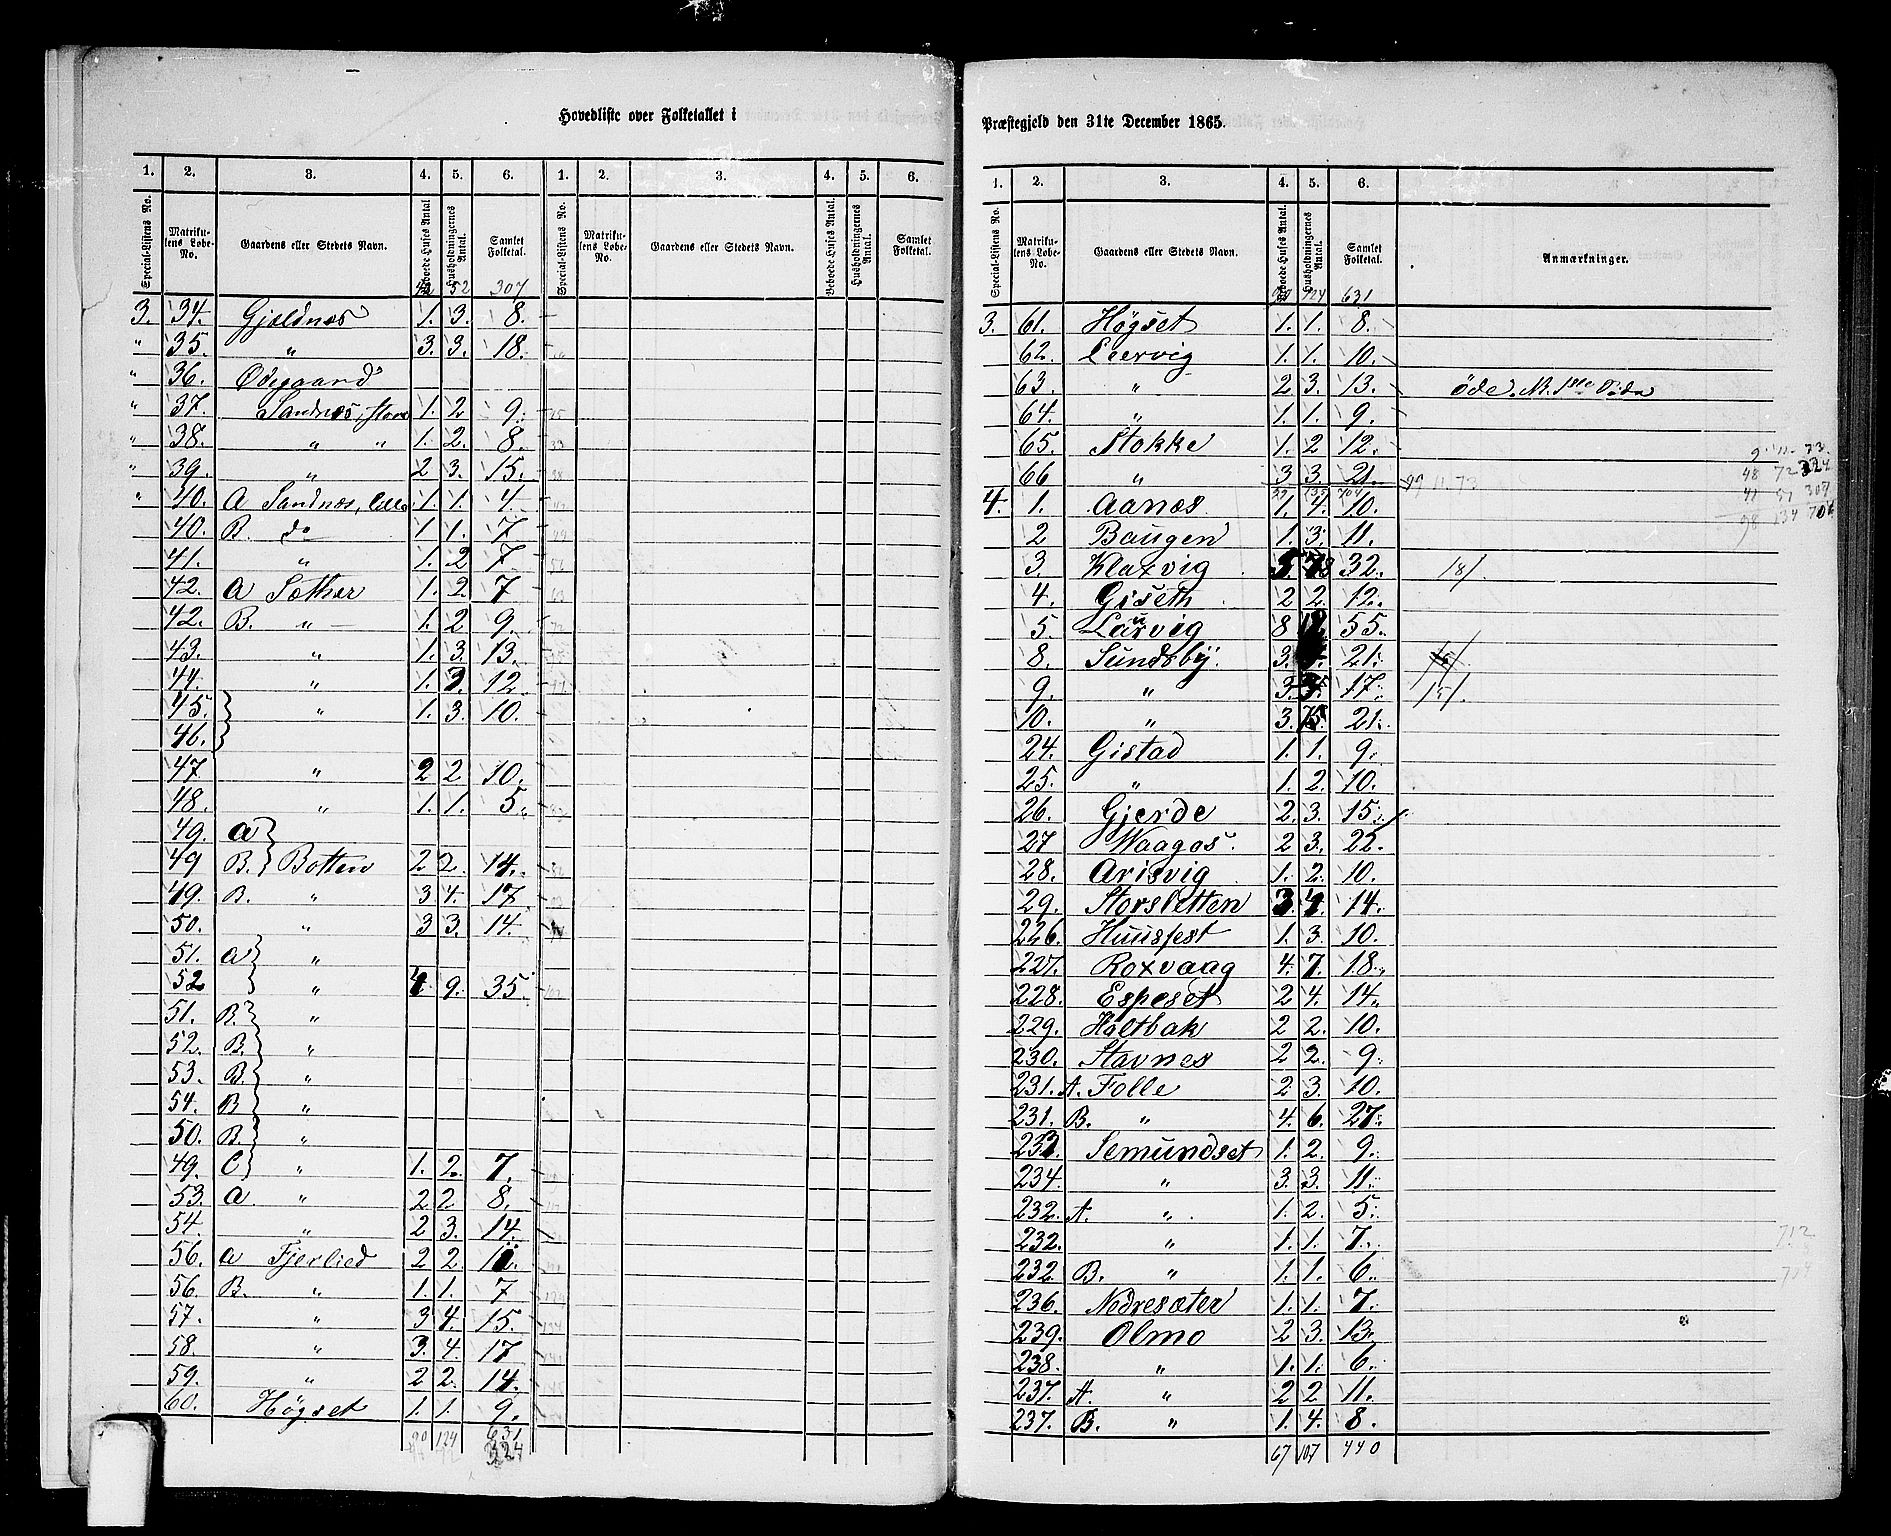 Hovedliste over Folketallet i
1. 2. 3. 4. 5. 6. 1. 2. 3. 4. 5. 6.
Special-Listens No. Matrikulens Løbe-No. Gaardens eller Stedets Navn. Beboede Huses Antal. Husholdningernes Antal. Samlet Folketal. Special-Listens No. Matrikulens Løbe-No. Gaardens eller Stedets Navn. Beboede Huses Antal. Husholdningernes Antal. Samlet Folketal.
52 307
3. 34. Gjeldnæs 1. 3. 8.
" 35. " 3. 3. 18.
" 36. Ødegaard
" 37. Sandnæs, store 1. 2 9.
" 38. " " 1. 2. 8.
" 39. " 2 3. 15.
" 40. A Sandnæs, lille 1. 1. 4.
40. B. do 1 1. 7.
41. " 1. 2 7.
42. A Sæther 1. 2. 7
42. B. " 1. 2 9.
43. " 1. 3. 13.
44. " 1. 3. 12.
45. " 1. 3. 10.
46.
47 " 2 2. 10.
48. " 1. 1. 5.
49. A
49 B. Botten 2 2. 14.
49. B. " 3 4. 17.
50. " 3 3. 14.
51. A "
52 " 4 9. 35.
51. B. "
52. B. "
53. B. "
54. B "
50. B. "
49. C " 1. 2. 7.
53. A " 2 2 8.
54. " 2 3. 14.
56. A Fjerlied 2 2
56. B. " 1. 1. 7
57. " 3 4. 15.
58. " 3. 4. 17
59. " 2 2. 14.
60. Høgset 1. 1. 9.
90 124 631
324
Præstegjeld den 31te December 1865.
1. 2. 3. 4. 5. 6.
Special-Listens No. Matrikulens Løbe-No. Gaardens eller Stedets Navn. Beboede Huses Antal. Husholdningernes Antal. Samlet Folketal. Anmærkninger.
90 124 631
3. 61. Høgset 1. 1. 8.
62. Leervig 1. 1. 10.
63. " 2. 3. 13.
64. " 1. 1. 9.
65. Stokke 1. 2 12.
66 " 3. 3. 21.
4. 1. Aanæs 1. 4. 10.
2 Baugen 1. 3. 11.
3. Klaxvig 5. 32. 181.
4. Giseth 2 2. 12.
5. 8 55.
8. Sundsby 3. 21.
9. " 3. 17. 151.
10. " 3. 21.
24. Gistad 1. 1. 9.
25. " 1. 2. 10.
26. Gjerde 2. 3. 15.
27 Waagos. 2 3. 22.
28. Arisvig 1. 2. 10.
29. Storsletten 3. 4. 14.
226. Huusfest 1. 3. 10.
227. Roxvaag 4. 7. 18.
228. Espeset 2 4. 14.
229. Holtbak 2 2. 10.
230. Stavnes 2 2. 9.
231. A. Folle 2 3. 10.
231. B. " 4. 6. 27.
Semundset 1. 2. 9.
234. " 3. 3. 11.
232. A. " 1. 2. 5.
232. " 1. 1. 7.
232 B. " 1. 1. 6.
236. Nedresæter 1. 1. 7.
239. Olmo 2 3. 13.
238. " 1. 1. 6.
237. A. " 2 2. 11.
237. B. " 1. 4. 8.
67 107 440
48 72 324
98 134 704
712
704